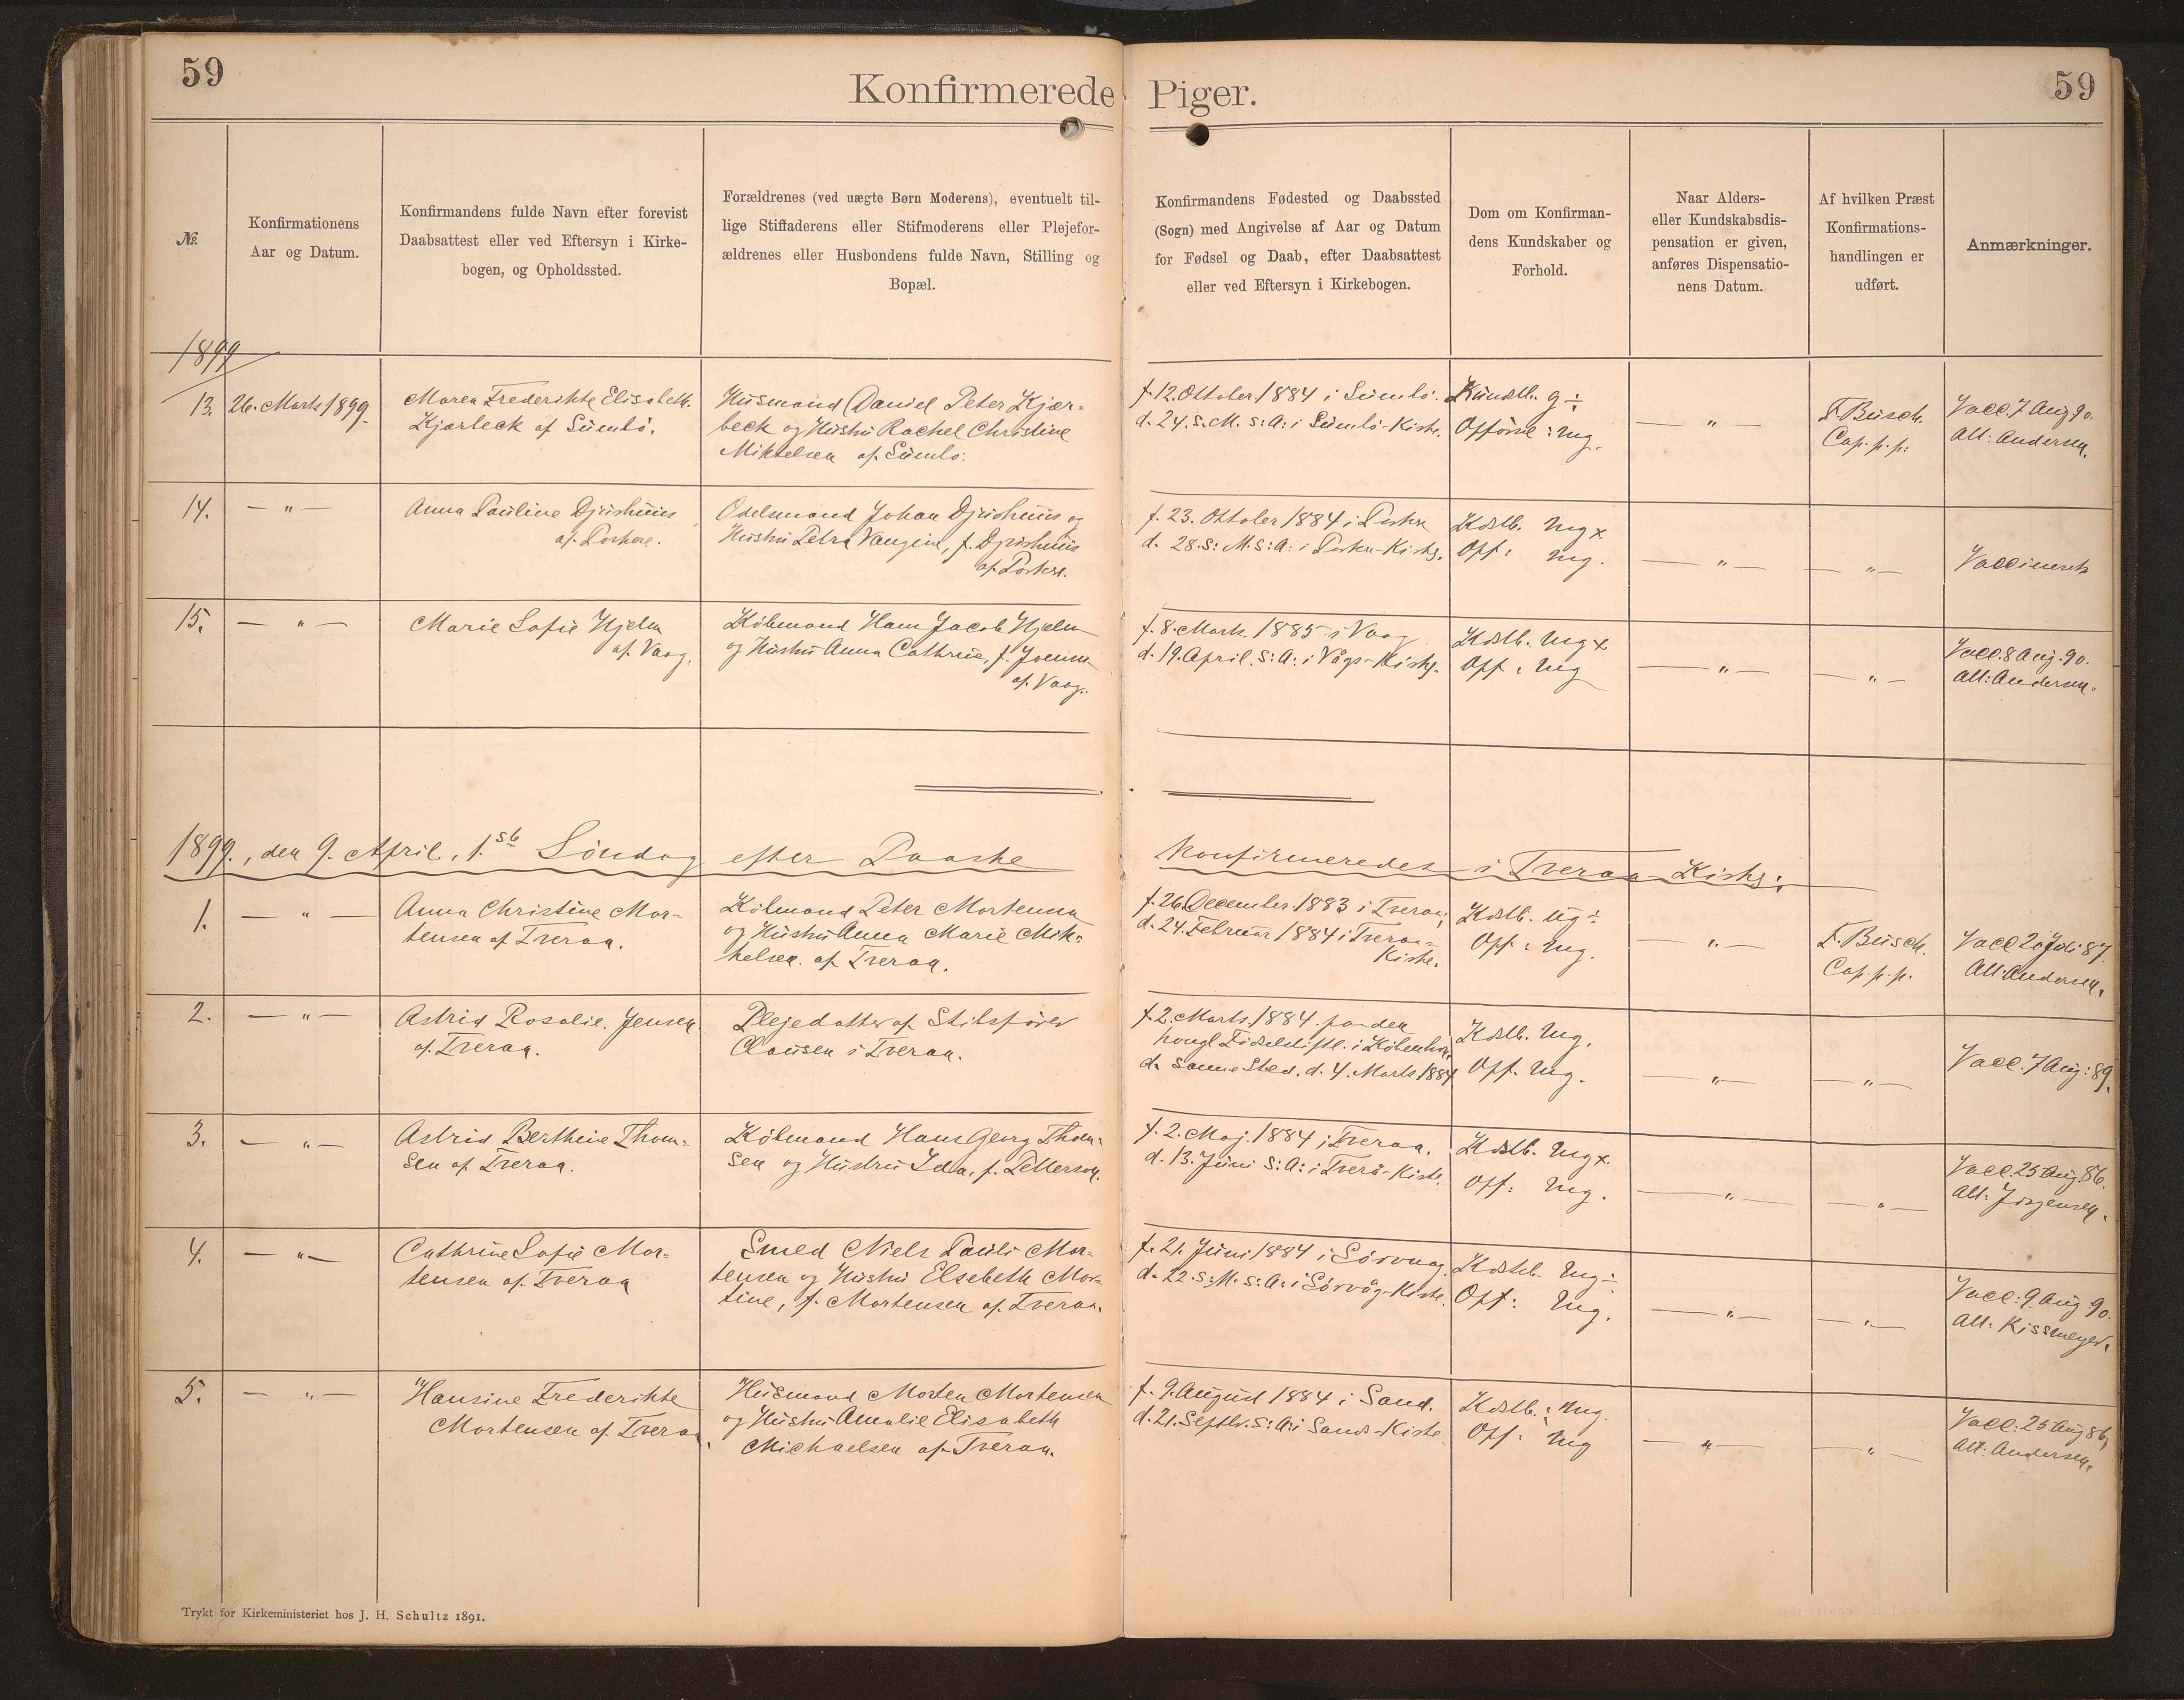 59
Konfirmerede Piger.
59
№.
Konfirmationens
Aar og Datum.
Konfirmandens fulde Navn efter forevist
Daabsattest eller ved Eftersyn i Kirke-
bogen, og Opholdssted.
Forældrenes (ved uægte Børn Moderens), eventuelt til-
lige Stiffaderens eller Stifmoderens eller Plejefor-
ældrenes eller Husbondens fulde Navn, Stilling og
Bopæl.
Konfirmandens Fødested og Daabssted
(Sogn) med Angivelse af Aar og Datum
for Fødsel og Daab, efter Daabsattest
eller ved Eftersyn i Kirkebogen.
Dom om Konfirman-
dens Kundskaber og
Forhold.
Naar Alders-
eller Kundskabsdis-
pensation er given,
anføres Dispensatio-
nens Datum.
Af hvilken Præst
Konfirmations-
handlingen er
udført.
Anmærkninger.
1899
13. 26. Marts 1899.
Maren Frederikke Elisabeth
Kjærbeck af Sumbö.
Husmand Daniel Peter Kjær=
beck og Hustru Rachel Christine
Mikkelsen af Sumbö.
f. 12. Oktober 1884 i Sumbö.
d. 24. s. M. s: A: i Sumbö-Kirke.
Kundb. g÷
Opførsel: mg.
— " —
F. Busch.
Cap. p. p:
Vacc. 7 Aug 90.
Att: Andersen.
14. — " —
Anna Pauline Djurhuus
af Porkere.
Odelsmand Johan Djurhuus og
Hustru Petra Vaugine, f. Djurhuus
af Porkere.
f. 23. Oktober 1884 i Porkere
d. 28. s: M. s: A: i Porkere-Kirke.
Kdstb. mg x
Opf: mg.
— " —
— " —
Vaccineret
15. — " —
Marie Sofie Hjelm
af Vaag.
Købmand Hans Jacob Hjelm
og Hustru Anna Cathrine, f. Joensen
af Vaag.
f. 8. Marts 1885 i Vaag
d. 19. April. s: A: i Vågs-Kirke.
Kdstb. mg x
Opf: mg
— " —
— " —
Vacc. 8 Aug. 90.
Att: Andersen.
1899., den 9. April, 1.ste Søndag efter Paaske Konfirmeredes i Tveraa-Kirke:
1. — " —
Anna Christine Mor=
tensen af Tveraa.
Købmand Peter Mortensen
og Hustru Anna Marie Mik=
kelsen. af Tveraa.
f. 26 December 1883 i Tveraa;
d. 24. Februar 1884 i Tveraa=
Kirke.
Kdstb. ug÷
Opf: mg.
— " —
F. Busch.
Cap. p. p.
Vacc 20 Juli 87.
Att: Andersen.
2. — " —
Astrid Rosalie. Jensen.
af Tveraa.
Plejedatter af Skibsfører
Clausen i Tveraa.
f. 2. Marts 1884 paa den
kongl Fødselsstift. i København.
d. samme Sted. d. 4. Marts 1884
Kdstb. mg.
Opf. mg.
— " —
— " —
Vacc. 7 Aug: 89.
3. — " —
Astrid Berthine Thom=
sen af Tveraa.
Købmand Hans Georg Thom=
sen og Hustru Ida, f. Petterson.
f. 2. Maj. 1884 i Tveraa.
d. 13. Juni s: A: i Tverå-Kirke.
Kdstb. mg x.
Opf: mg.
— " —
— " —
Vacc. 25 Aug. 86.
Att: Jörgensen.
4. — " —
Cathrine Sofie Mor=
tensen af Tveraa
Smed Niels Pauli Mor=
tensen og Hustru Elsebeth Mor=
tine, f. Mortensen af Tveraa.
f. 21. Juni 1884 i Sörvaag
d. 22. s: M. s: A: i Sörvåg-Kirke.
Kdstb. mg÷
Opf: mg.
— " —
— " —
Vacc: 9 Aug 90.
Att: Kissmeyer.
5. — " —
Hansine Frederikke
Mortensen af Tveraa.
Husmand Morten Mortensen
og Hustru Amalie Elisabeth
Michaelsen af Tveraa.
f. 9. August 1884 i Sand.
d. 21. Septbr. s: A: i Sands-Kirke.
Kdstb.: mg.
Opf: mg
— " —
— " —
Vacc: 25 Aug 86,
Att: Andersen.
Trykt for Kirkeministeriet hos J. H. Schultz 1891.